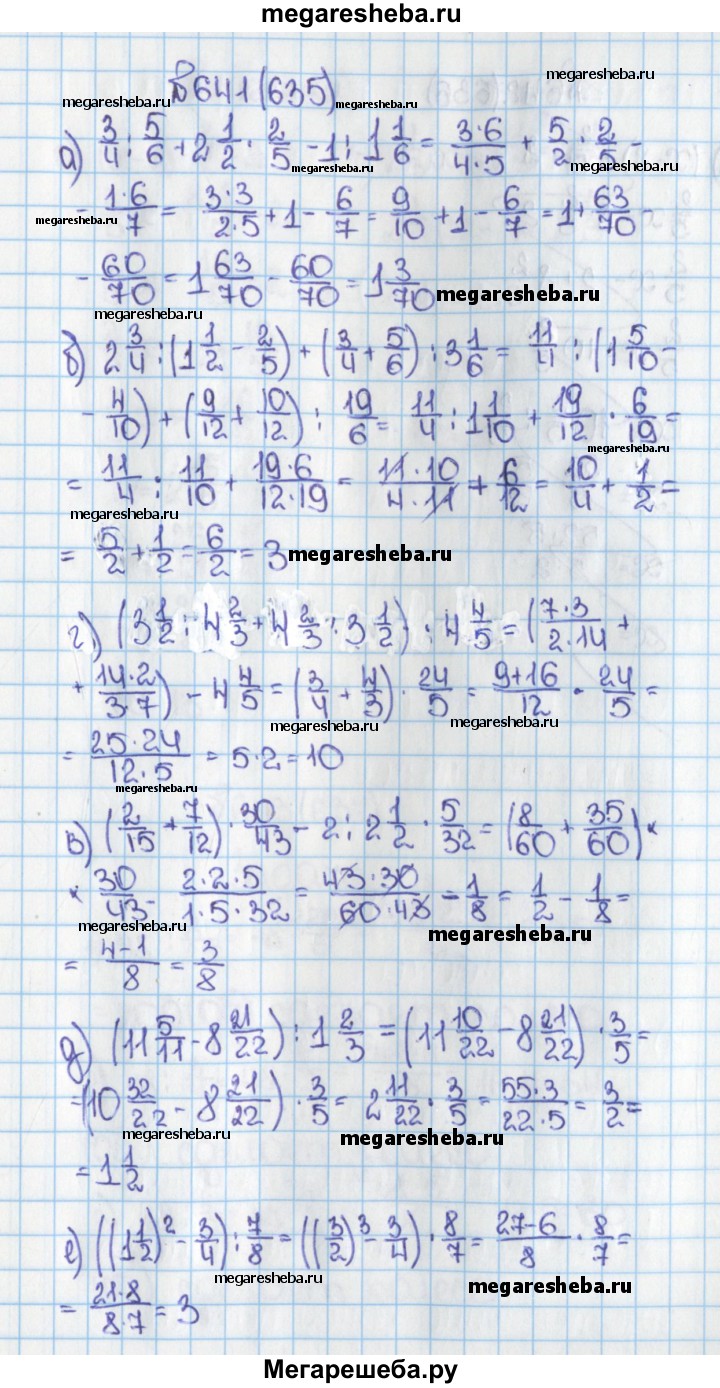 megaresheba.ru
megaresheba.ru
№641 (635)
megaresheba.ru megaresheba.ru
а) 3/4 : 5/6 + 2 1/2 · 2/5 - 1 : 1 1/6 = 3·6/4·5 + 5/2 · 2/5 -
megaresheba.ru megaresheba.ru
- 1·6/7 = 3·3/2·5 + 1 - 6/7 = 9/10 + 1 - 6/7 = 1 + 63/70 -
megaresheba.ru
- 60/70 = 1 63/70 - 60/70 = 1 3/70
megaresheba.ru
megaresheba.ru
б) 2 3/4 : (1 1/2 - 2/5) + (3/4 + 5/6) : 3 1/6 = 11/4 : (1 5/10 -
- 4/10) + (9/12 + 10/12) : 19/6 = 11/4 : 1 1/10 + 19/12 · 6/19 =
megaresheba.ru
= 11/4 : 11/10 + 19·6/12·19 = 11·10/4·11 + 6/12 = 10/4 + 1/2 =
megaresheba.ru
= 5/2 + 1/2 = 6/2 = 3
megaresheba.ru
г) (3 1/2 : 4 2/3 + 4 2/3 : 3 1/2) · 4 4/5 = (7·3/2·14 +
+ 14·2/3·7) - 4 4/5 = (3/4 + 4/3) · 24/5 = 9+16/12 · 24/5 =
megaresheba.ru megaresheba.ru
= 25·24/12·5 = 5·2 = 10
megaresheba.ru
в) (2/15 + 7/12) · 30/43 - 2 : 2 1/2 · 5/32 = (8/60 + 35/60) ×
× 30/43 - 2·2·5/1·5·32 = 43·30/60·43 - 1/8 = 1/2 - 1/8 =
megaresheba.ru megaresheba.ru
= 4-1/8 = 3/8
д) (11 5/11 - 8 21/22) : 1 2/3 = (11 10/22 - 8 21/22) · 3/5 =
= (10 32/22 - 8 21/22) · 3/5 = 2 11/22 · 3/5 = 55·3/22·5 = 3/2 =
megaresheba.ru megaresheba.ru
= 1 1/2
е) ((1 1/2)² - 3/4) : 7/8 = ((3/2)³ - 3/4) · 8/7 = 27-6/8 · 8/7 =
megaresheba.ru megaresheba.ru
= 21·8/8·7 = 3
Мегарешеба.ру